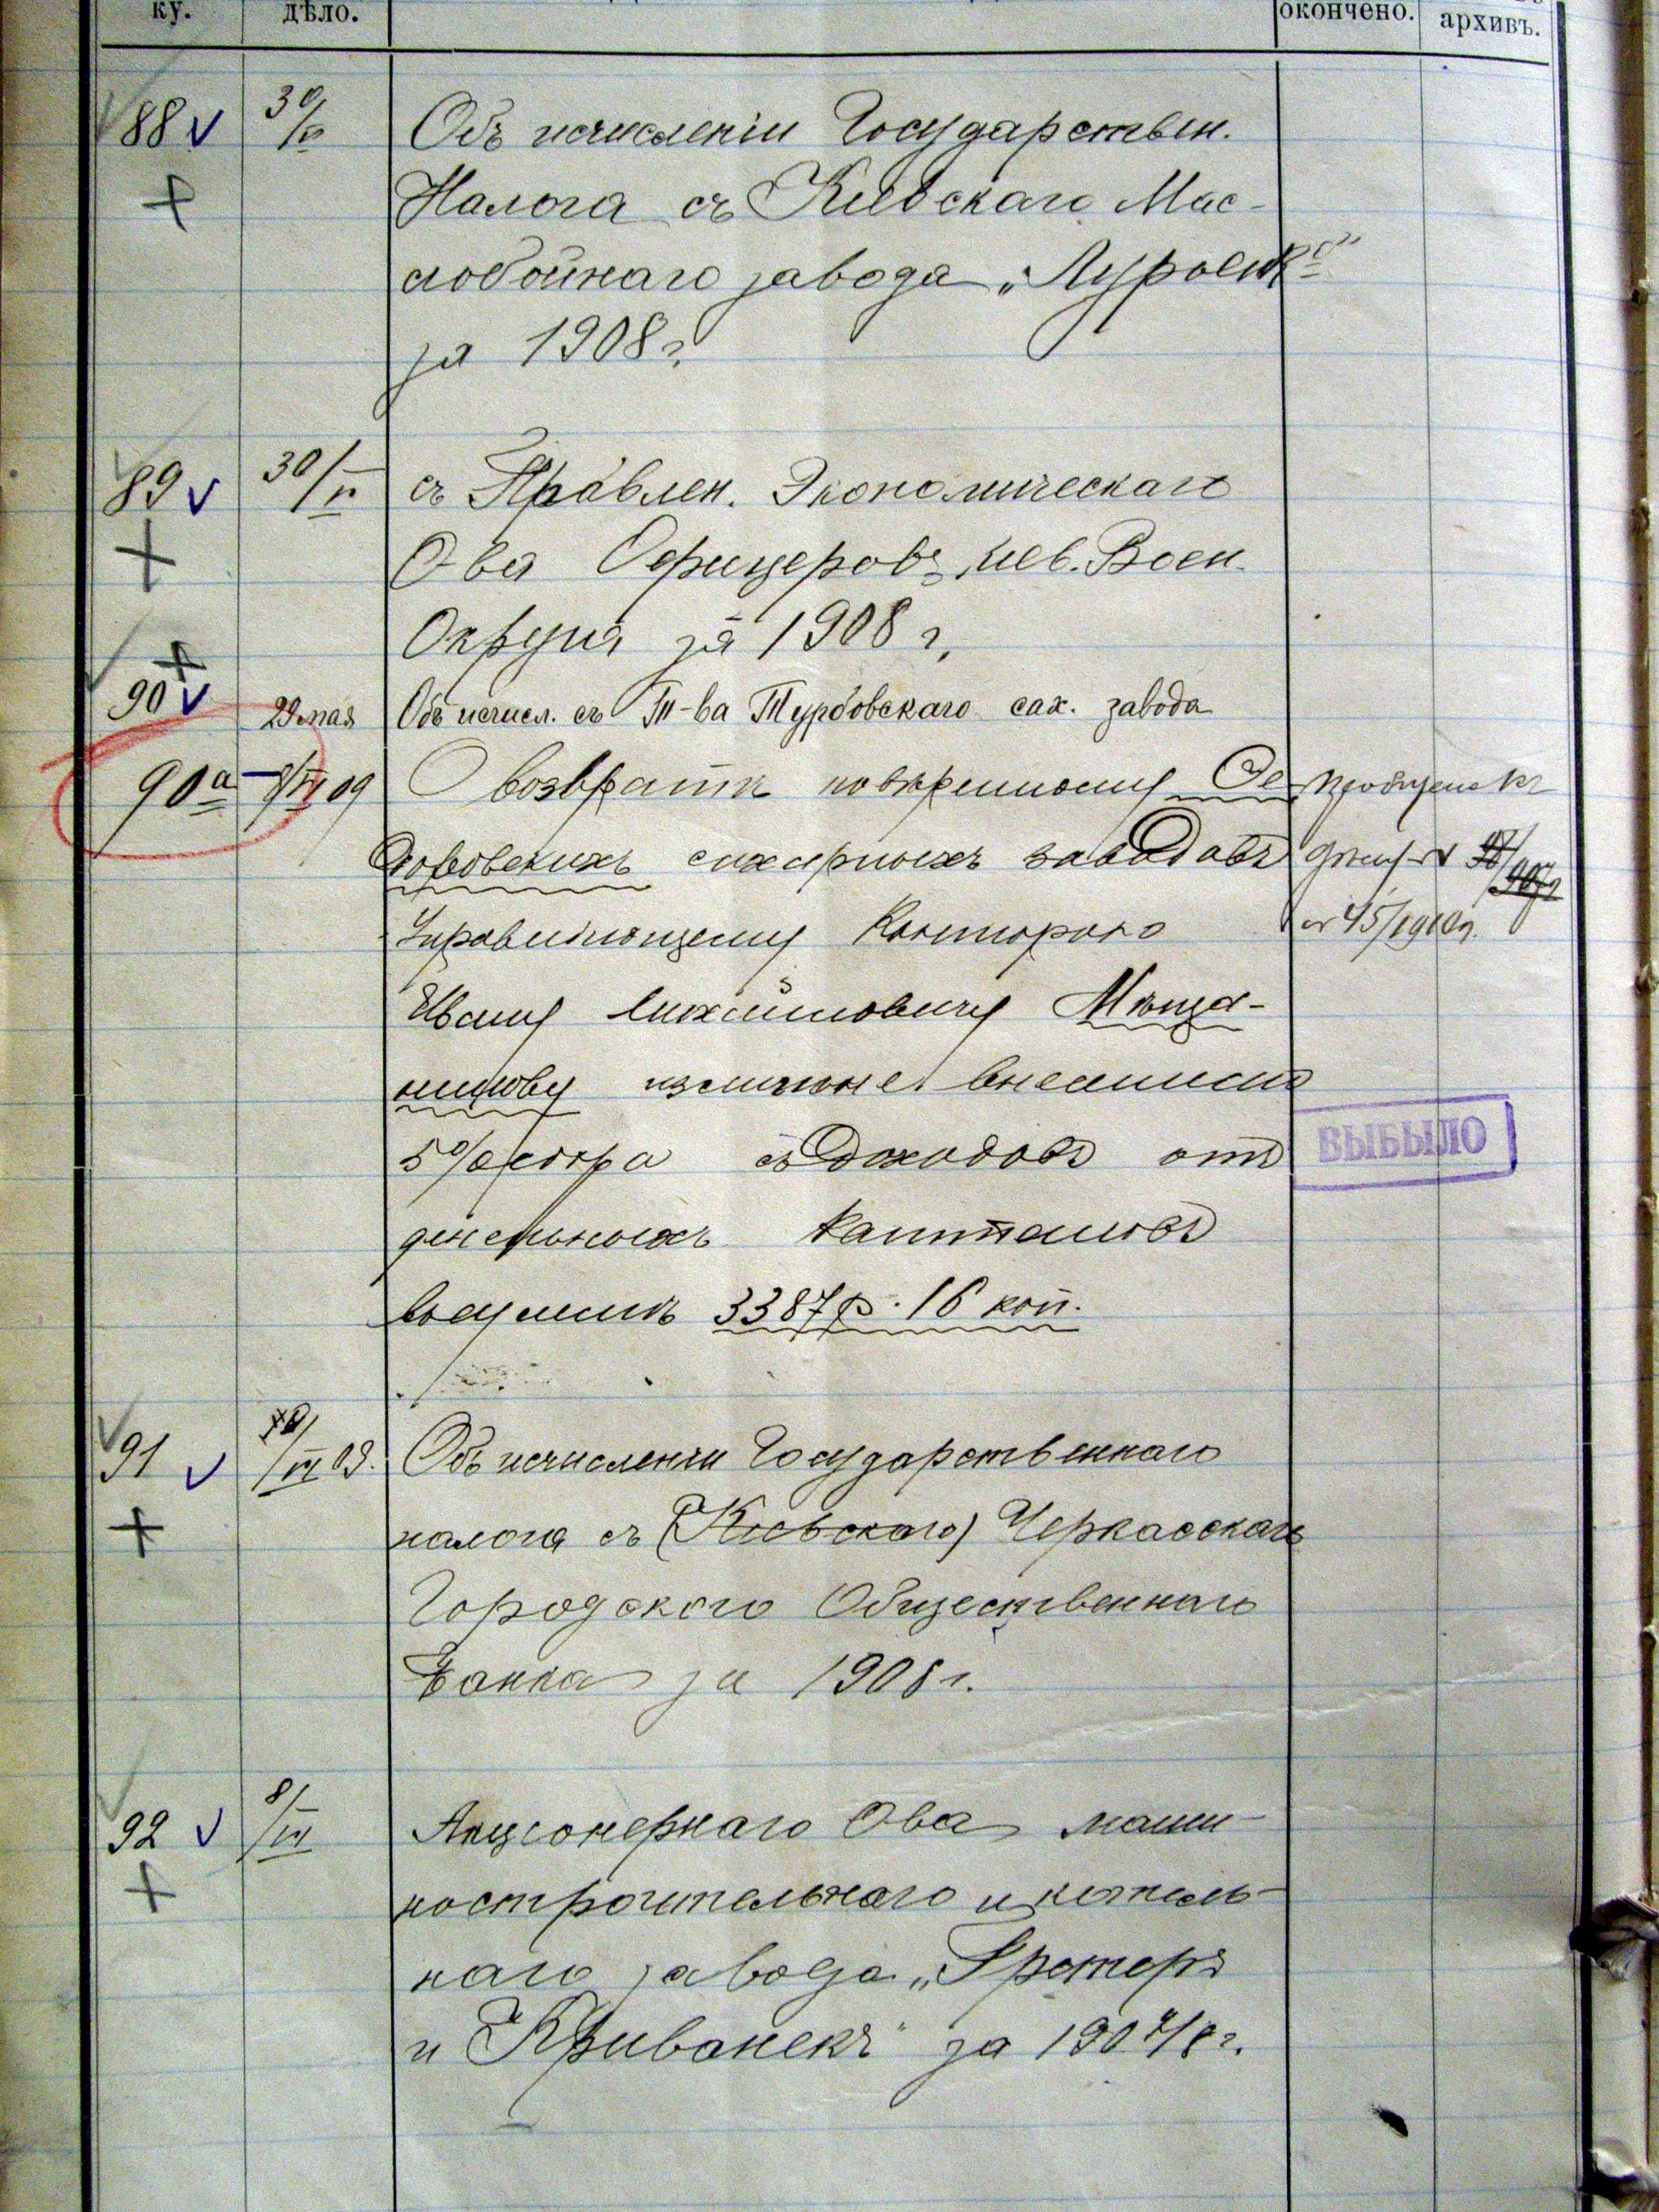 ку. дѣло. окончено. архивъ.
88 v 30/V Объ исчисленіи Государствен.
Налога съ Кіевскаго Мас-
лобойнаго завода „
за 1908 г.
89 v 30/V съ Правлен. Экономическаго
О-ва Офицеровъ Кіев. Воен.
Округа за 1908 г.
90 v 29 мая Объ исчисл. съ Т-ва Турбовскаго сах. завода
90а /VI 09 О возвратѣ повѣренному
сахарныхъ заводовъ
Управляющему Конторою
Ивану Михайловичу Мѣща-
нинову излишне внесеннаго
5% сбора съ доходовъ отъ
денежныхъ капиталовъ
въ суммѣ 3387 р. 16 коп.
Пріобщено къ
45/1910 г.
ВЫБЫЛО
91 v /VI 09. Объ исчисленіи Государственнаго
налога съ (Кіевскаго) Черкасскаго
Городского Общественнаго
Банка за 1908 г.
92 v 8/VI Акціонернаго О-ва маши-
ностроительнаго и котель-
наго завода „Гретеръ
и Криванекъ" за 1907/8 г.